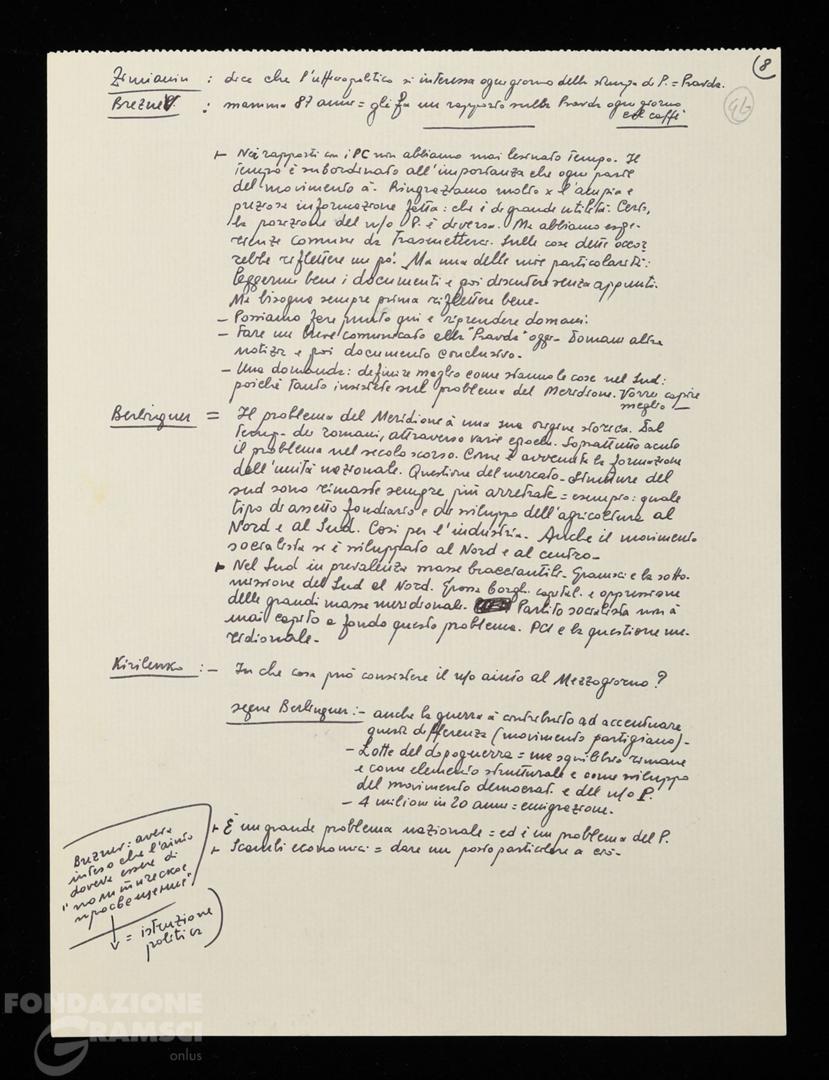 8
46
Zimianin : dice che l'ufficio politico si interessa ogni giorno della stampa di P. = Pravda.
Breznev : mamma 87 anni = gli fa un rapporto sulla Pravda ogni giorno
col caffè
Nei rapporti con i PC non abbiamo mai lesinato tempo. Il
tempo è subordinato all'importanza che ogni parte
del movimento à. Ringraziamo molto x l'ampia e
preziosa informazione fatta: che è di grande utilità. Certo,
la posizione del n/o P. è diversa. Ma abbiamo espe-
rienze comuni da trasmetterci. Sulle cose dette occor-
rebbe riflettere un pò. Ma una delle mie particolarità:
leggermi bene i documenti e poi discutere senza appunti.
Ma bisogna sempre prima riflettere bene-
- Possiamo fare punto qui e riprendere domani.
- Fare un breve comunicato alla "Pravda" oggi- Domani altra
notizia e poi documento conclusivo-
- Una domanda: definire meglio come stanno le cose nel Sud:
poichè tanto insistete sul problema del Meridione. Vorrei capire
meglio -
Berlinguer = Il problema del Meridione à una sua origine storica. Dal
tempo dei romani, attraverso varie epoche. Soprattutto acuto
il problema nel secolo scorso. Come è avvenuta la formazione
dell'unità nazionale. Questione del mercato- Strutture del
sud sono rimaste sempre più arretrate = esempio: quale
tipo di assetto fondiario e di sviluppo dell'agricoltura al
Nord e al Sud. Così per l'industria. Anche il movimento
socialista si è sviluppato al Nord e al centro-
Nel Sud in prevalenza masse bracciantili- Gramsci e la sotto-
missione del Sud al Nord. Grossa borgh. capital. e oppressione
delle grandi masse meridionali. Partito socialista non à
mai capito a fondo questo problema. PCI e la questione me-
ridionale-
Kirilenko :- In che cosa può consistere il n/o aiuto al Mezzogiorno?
segue Berlinguer :- anche la guerra à contribuito ad accentuare
questa differenza (movimento partigiano)-
- Lotte del dopoguerra = ma squilibrio rimane
e come elemento strutturale e come sviluppo
del movimento democrat. e del n/o P.
- 4 milioni in 20 anni = emigrazione-
È un grande problema nazionale = ed è un problema del P.
Scambi economici = dare un posto particolare a ciò-
Breznev: aveva
inteso che l'aiuto
doveva essere di
"политическое
просвещение"
= istruzione
politica
FONDAZIONE
GRAMSCI
onlus